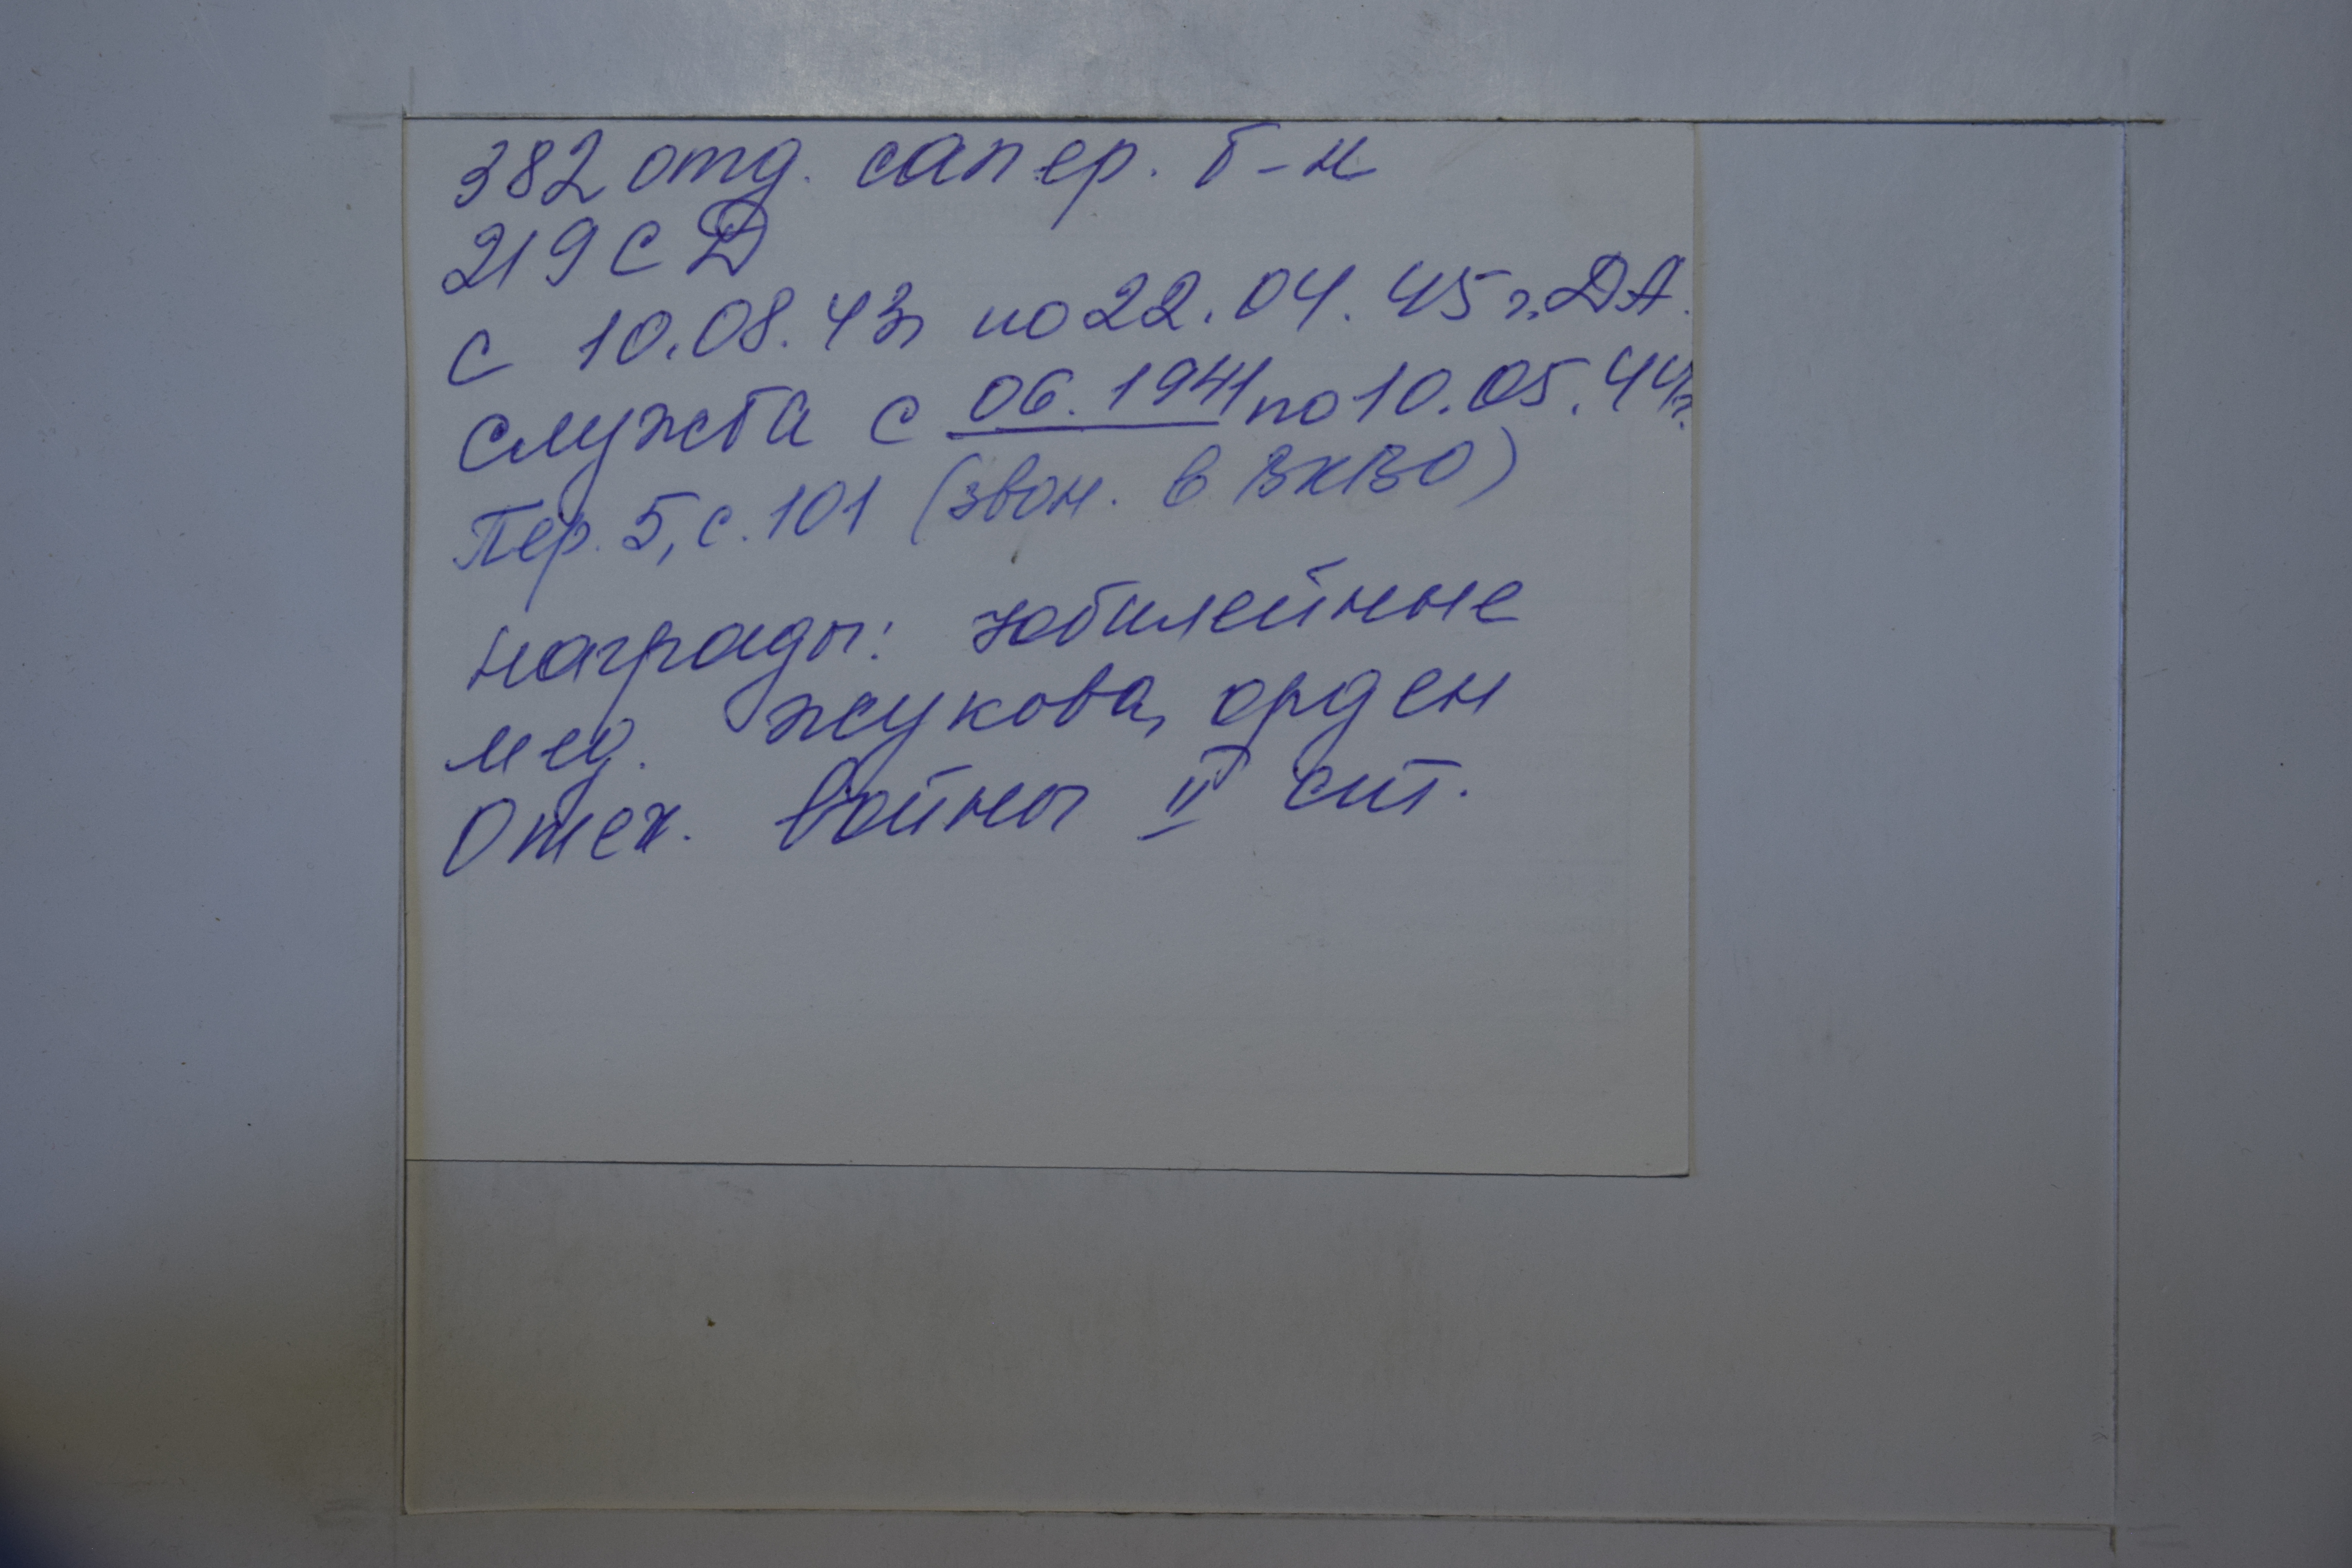 382 отд. сапер. б-н
219 СД
с 10.08.43г по 22.04.45 г. ДА.
служба с 06.1941 по 10.05.44г.
Пер. 5, с. 101 (звон. в ВКВО)
награды: юбилейные
мед. Жукова, орден
Отеч. войны II ст.